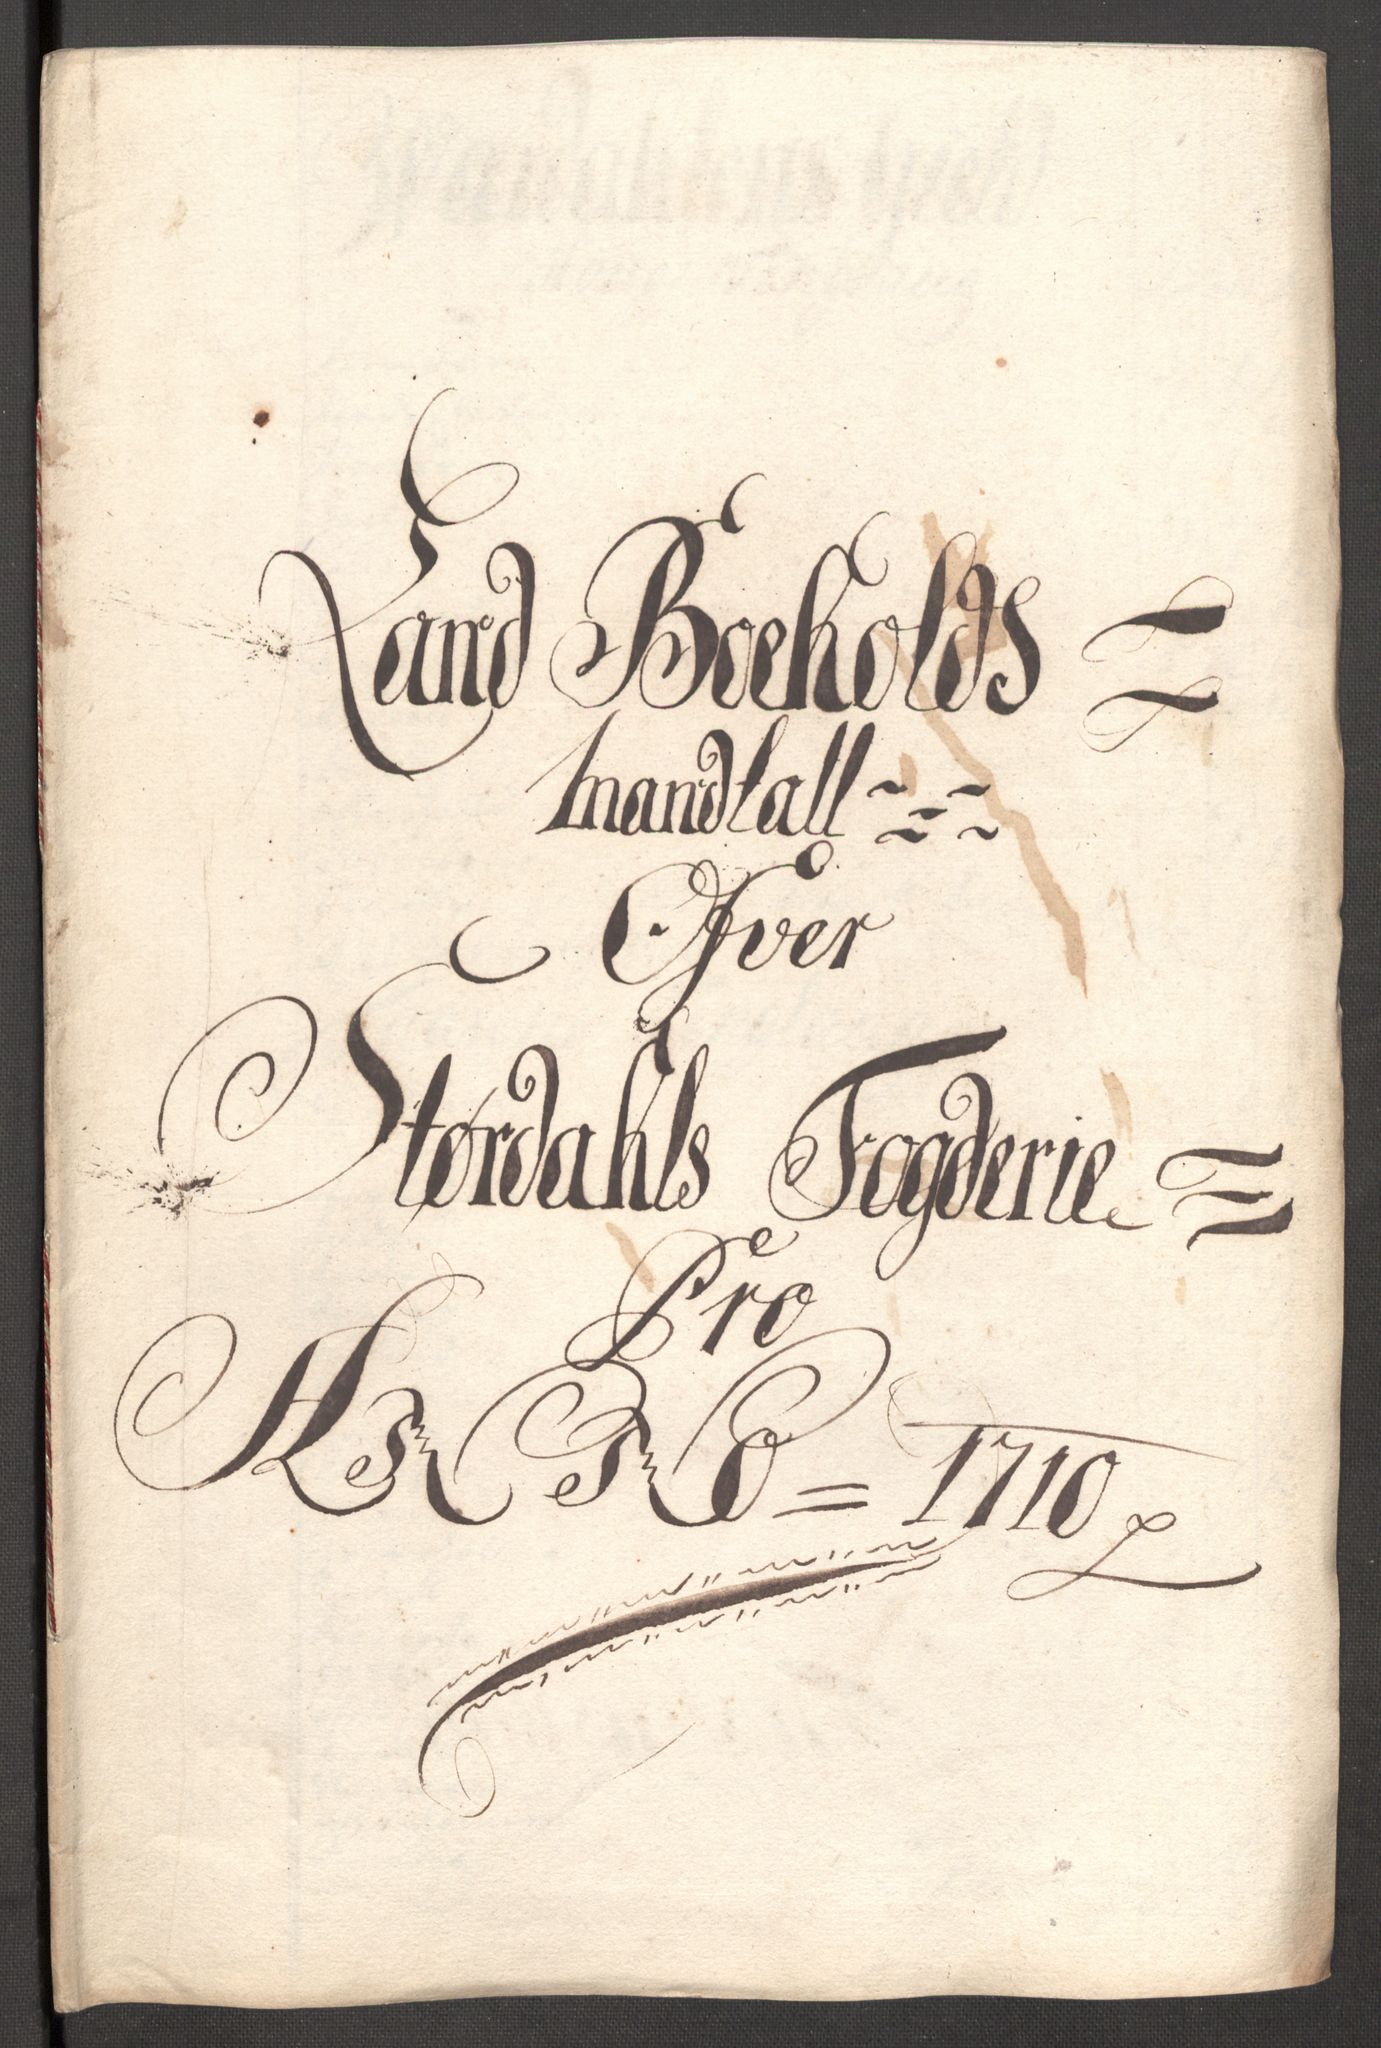 Land Boeholds =
mandtall
Ofver
Størdahls Fogderie =
Pro
A̅o̅ = 1710